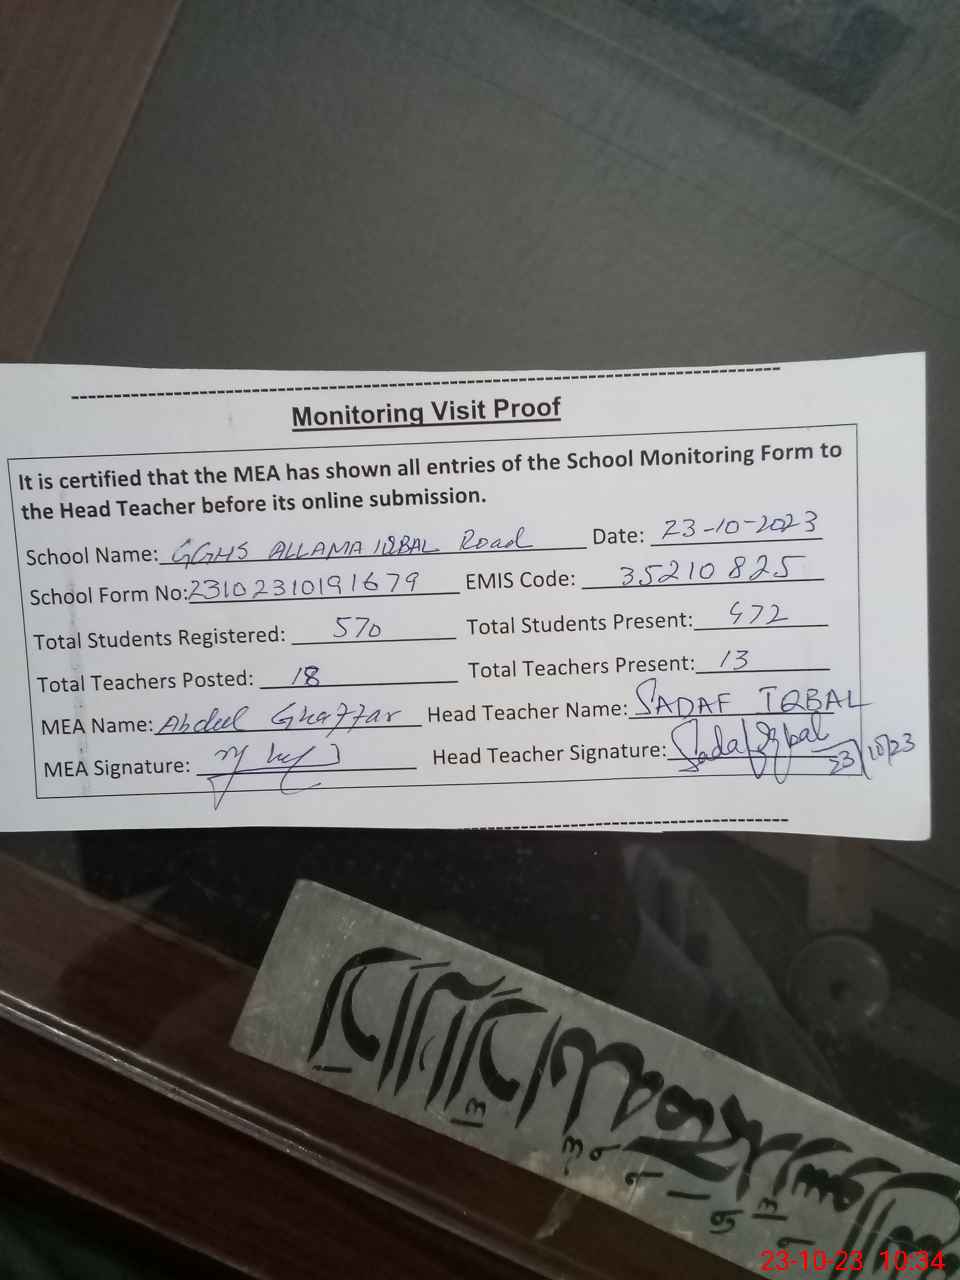 Monitoring Visit Proof
It is certified that the MEA has shown all entries of the School Monitoring Form to
the Head Teacher before its online submission.
School Name: GGHS ALLAMA IQBAL Road Date: 23-10-2023
School Form No: 23102310191679 EMIS Code: 35210825
Total Students Registered: 570 Total Students Present: 472
Total Teachers Posted: 18 Total Teachers Present: 13
MEA Name: Abdul Ghaffar Head Teacher Name: SADAF IQBAL
MEA Signature: Head Teacher Signature: Sadaf Iqbal
23/10/23
23-10-23 10:34